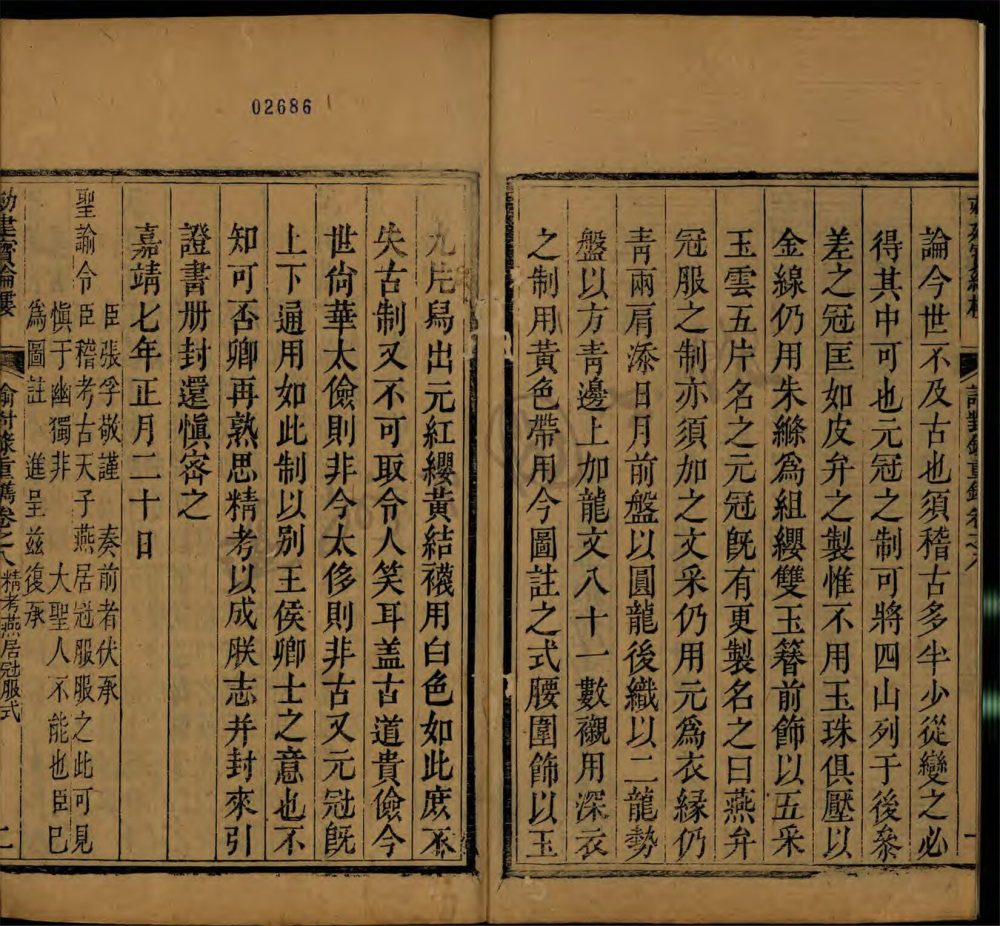 諭對錄重鐫卷之八
一
論今世不及古也須稽古多半少從變之必
得其中可也元冠之制可將四山列于後叅
差之冠匡如皮弁之製惟不用玉珠俱壓以
金線仍用朱絛為組纓雙玉簪前飾以五采
玉雲五片名之元冠既有更製名之曰燕弁
冠服之制亦須加之文采仍用元為衣緣仍
青兩肩添日月前盤以圓龍後織以二龍勢
盤以方青邊上加龍文八十一數襯用深衣
之制用黃色帶用今圖註之式腰圍飾以玉
九片舄出元紅纓黃結襪用白色如此庶不
失古制又不可取令人笑耳盖古道貴儉今
世尙華太儉則非今太侈則非古又元冠旣
上下通用如此制以别王侯卿士之意也不
知可否卿再熟思精考以成朕志并封來引
證書册封還愼宻之
嘉靖七年正月二十日
臣張孚敬謹 奏前者伏承
聖諭令臣稽考古天子燕居冠服服之此可見
愼于幽獨非 大聖人不能也臣已
為圖註 進呈兹復承
勅建寳綸樓
諭對錄重鐫卷之八
精考燕居冠服式
二
02686